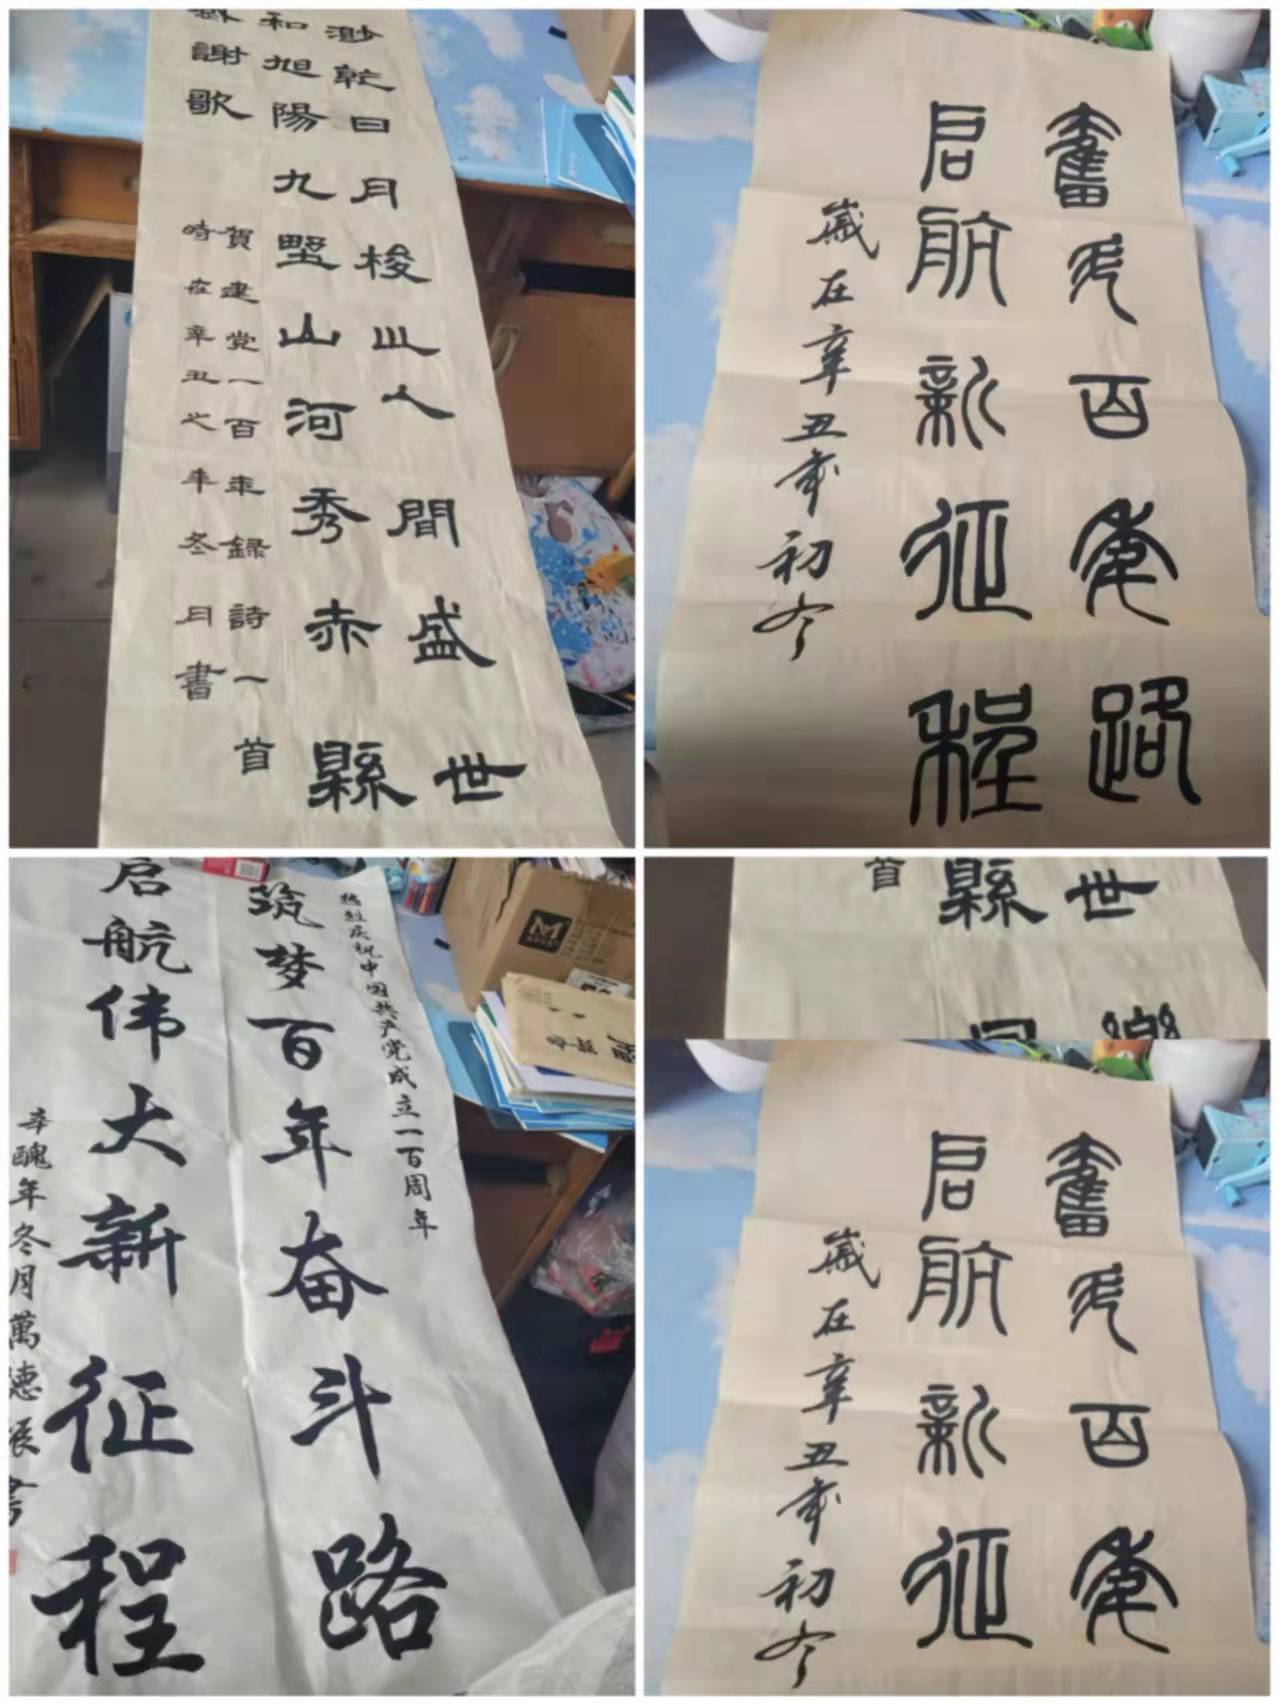 渺乾日月梭
人間盛世
和旭陽九墅山河秀赤縣
謝歌
賀建党一百年録詩一首
時在辛丑之年冬月書
奮鬥百年路
启航新征程
歲在辛丑年初冬
热烈庆祝中国共产党成立一百周年
筑梦百年奋斗路
启航伟大新征程
辛醜年冬月萬德振书
世
縣
首
奮鬥百年
启航新征
歲在辛丑年初冬